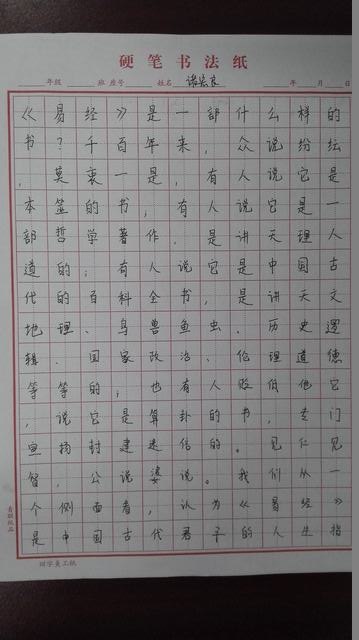 硬笔书法纸
年级 班 座号 姓名 年 月 日
《易经》是一部什么样的
书？千百年来，众说纷纭
，莫衷一是，有人说它是
本筮的书，有人说它是一
部哲学著作，是讲天理人
道的；有人说它是中国古
代的百科全书，是讲天文
地理、鸟兽鱼虫、历史逻
辑、国家政治、伦理道德
等等的；也有人贬低他它
，说它是算卦的书，专门
宣扬封建迷信的。见仁见
智，公说婆说。我们从一
个侧面看，认为《易经》
是中国古代君子的人生指
田字美工纸